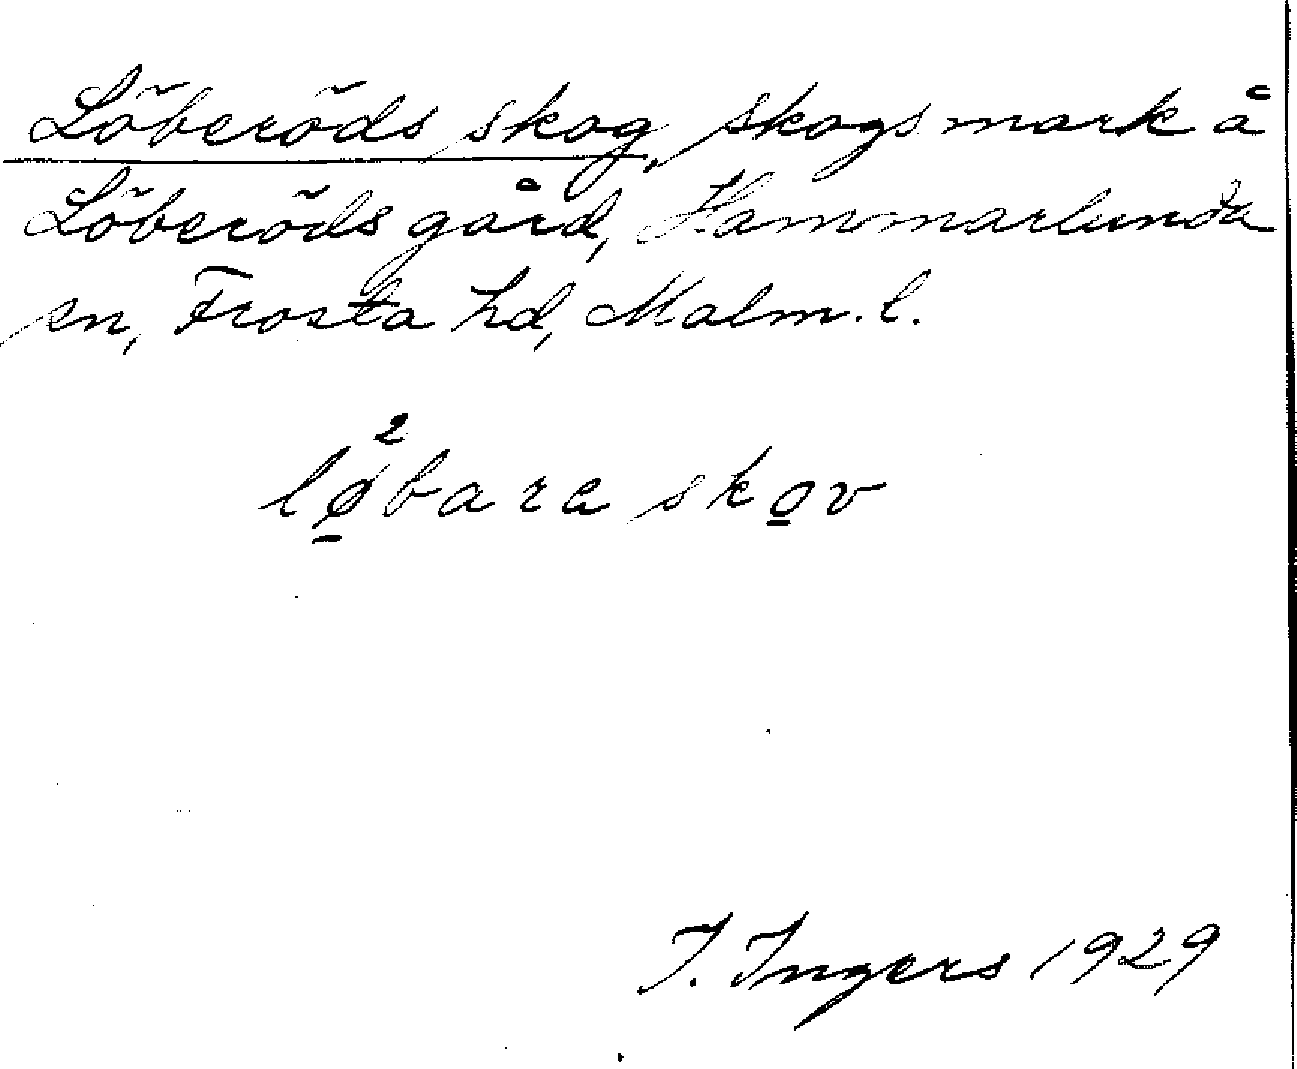 Löberöds skog, skogsmark å
Löberöds gård, Hammarlunda
sn, Frosta hd, Malm. l.
lø̱²bara sko̱v
I. Ingers 1929